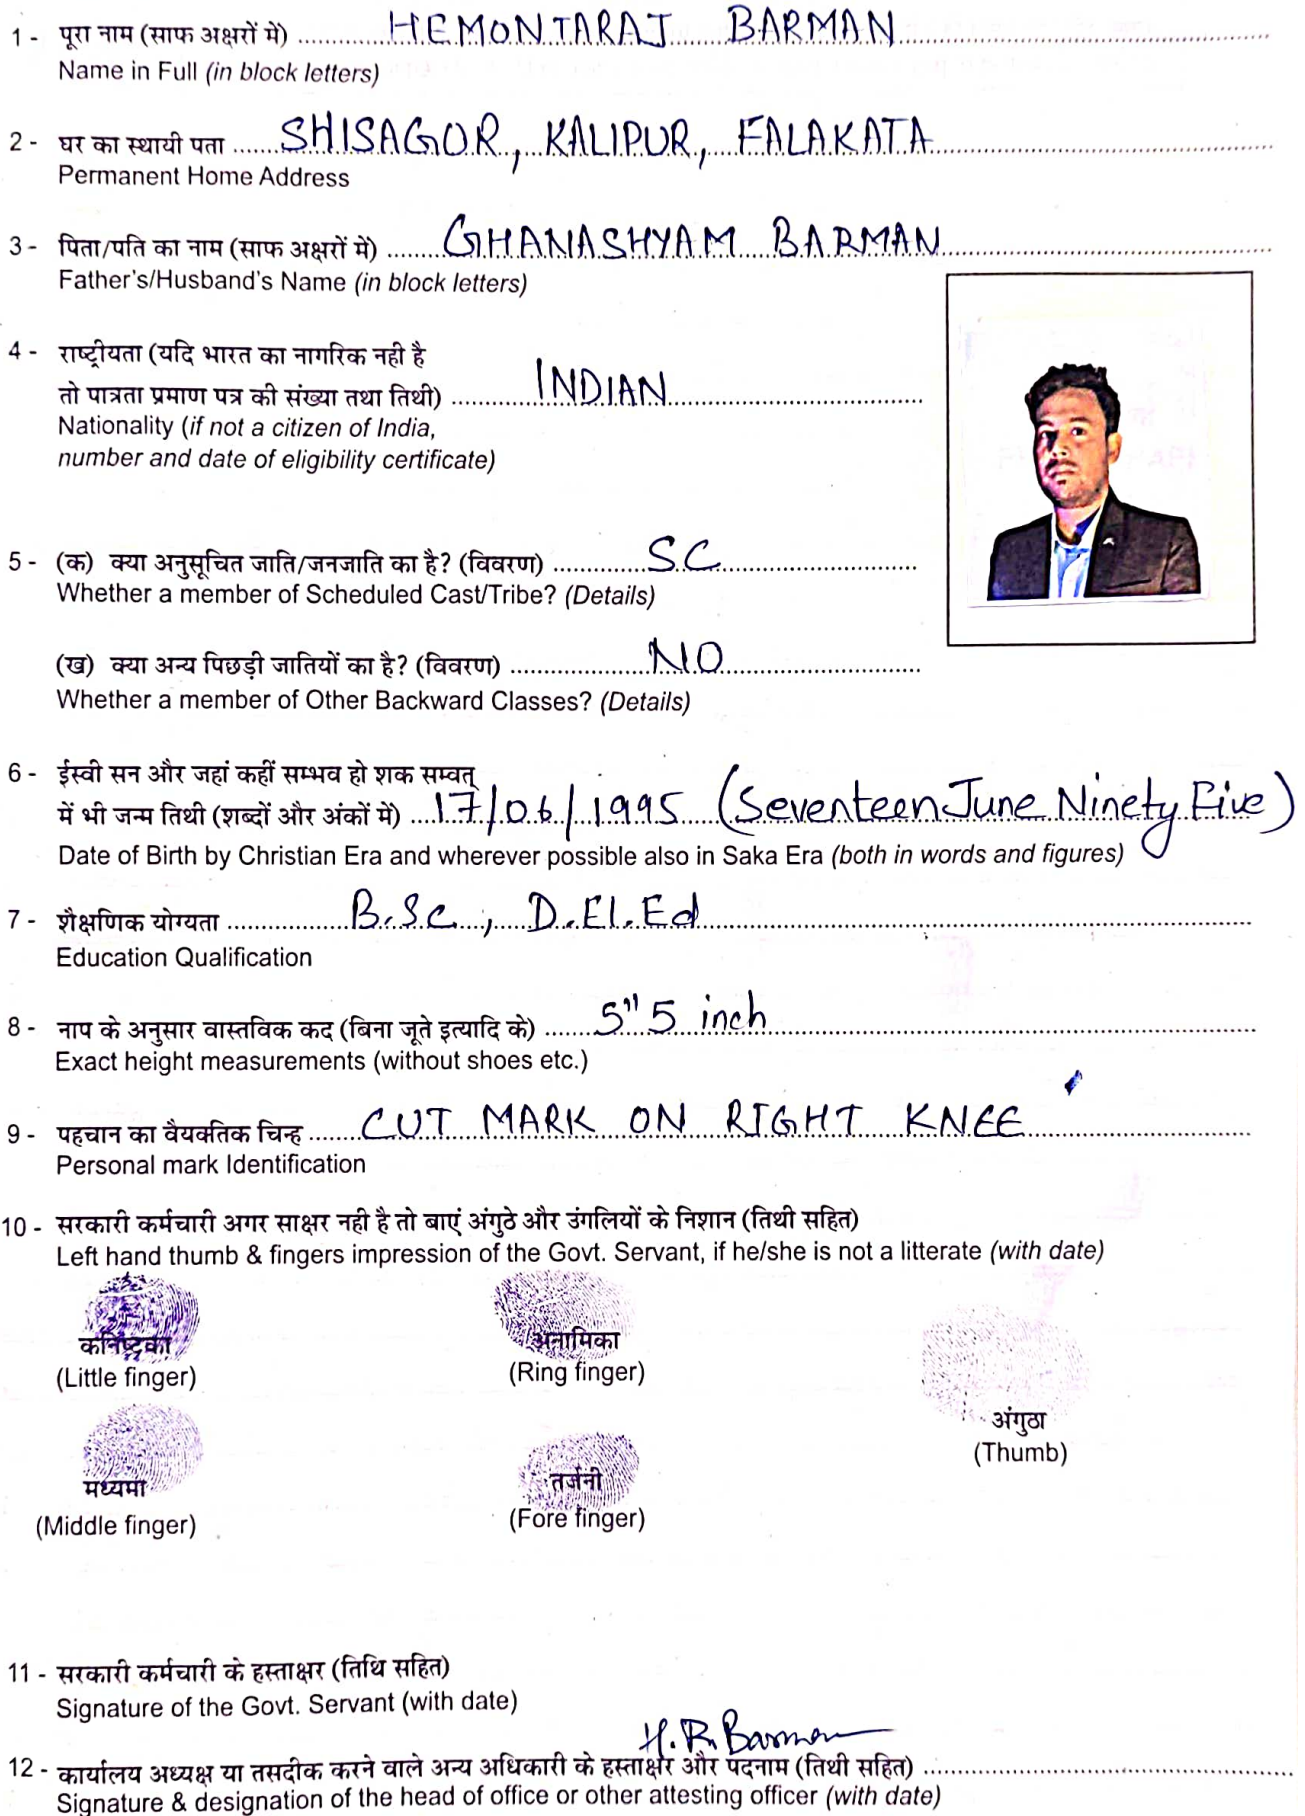 1 - पूरा नाम (साफ अक्षरों में) HEMONTARAJ BARMAN
Name in Full (in block letters)
2 - घर का स्थायी पता SHISAGOR, KALIPUR, FALAKATA
Permanent Home Address
3 - पिता/पति का नाम (साफ अक्षरों में) GHANASHYAM BARMAN
Father's/Husband's Name (in block letters)
4 - राष्ट्रीयता (यदि भारत का नागरिक नही है
तो पात्रता प्रमाण पत्र की संख्या तथा तिथी) INDIAN
Nationality (if not a citizen of India,
number and date of eligibility certificate)
5 - (क) क्या अनुसूचित जाति/जनजाति का है? (विवरण) SC
Whether a member of Scheduled Cast/Tribe? (Details)
(ख) क्या अन्य पिछड़ी जातियों का है? (विवरण) NO
Whether a member of Other Backward Classes? (Details)
6 - ईस्वी सन और जहां कहीं सम्भव हो शक सम्वत्
में भी जन्म तिथी (शब्दों और अंकों में) 17/06/1995 (Seventeen June Ninety Five)
Date of Birth by Christian Era and wherever possible also in Saka Era (both in words and figures)
7 - शैक्षणिक योग्यता B.Sc, D.El.Ed
Education Qualification
8 - नाप के अनुसार वास्तविक कद (बिना जूते इत्यादि के) 5" 5 inch
Exact height measurements (without shoes etc.)
9 - पहचान का वैयक्तिक चिन्ह CUT MARK ON RIGHT KNEE
Personal mark Identification
10 - सरकारी कर्मचारी अगर साक्षर नही है तो बाएं अंगुठे और उंगलियों के निशान (तिथी सहित)
Left hand thumb & fingers impression of the Govt. Servant, if he/she is not a litterate (with date)
कनिष्टका अनामिका
(Little finger) (Ring finger)
अंगुठा
(Thumb)
मध्यमा तर्जनी
(Middle finger) (Fore finger)
11 - सरकारी कर्मचारी के हस्ताक्षर (तिथि सहित)
Signature of the Govt. Servant (with date)
H.R. Barman
12 - कार्यालय अध्यक्ष या तसदीक करने वाले अन्य अधिकारी के हस्ताक्षर और पदनाम (तिथी सहित)
Signature & designation of the head of office or other attesting officer (with date)